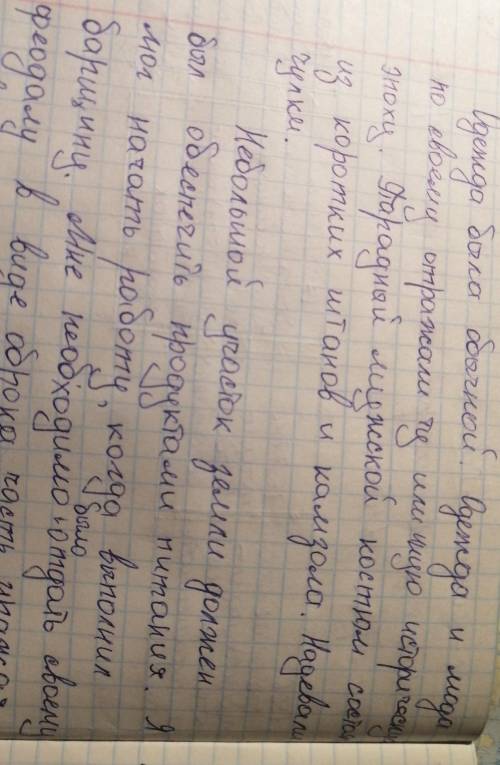 Одежда была обычной. Одежда и мода
по своему отражали ту или иную историческую
эпоху. Парадный мужской костюм состоял
из коротких штанов и камзола. Надевали
чулки.
Небольшой участок земли должен
был обеспечить продуктами питания. Я
мог начать роботу, когда выполнил
барщину. Мне необходимо было отдать своему
феодалу в виде оброка часть урожая